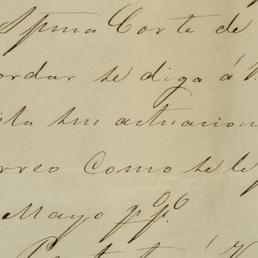 Spma. Corte de
ordar se diga á
sta sus actuacion
rreo como se le
Mayo p.º p.º